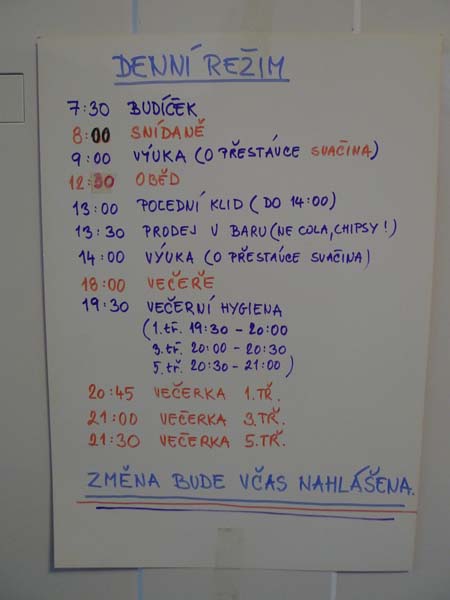 DENNÍ REŽIM
7:30 BUDÍČEK
8:00 SNÍDANĚ
9:00 VÝUKA (O PŘESTÁVCE SVAČINA)
12:30 OBĚD
13:00 POLEDNÍ KLID (DO 14:00)
13:30 PRODEJ V BARU (NE COLA, CHIPSY!)
14:00 VÝUKA (O PŘESTÁVCE SVAČINA)
18:00 VEČEŘE
19:30 VEČERNÍ HYGIENA
(1.tř. 19:30 - 20:00
3.tř. 20:00 - 20:30
5.tř. 20:30 - 21:00)
20:45 VEČERKA 1.TŘ.
21:00 VEČERKA 3.TŘ.
21:30 VEČERKA 5.TŘ.
ZMĚNA BUDE VČAS NAHLÁŠENA.